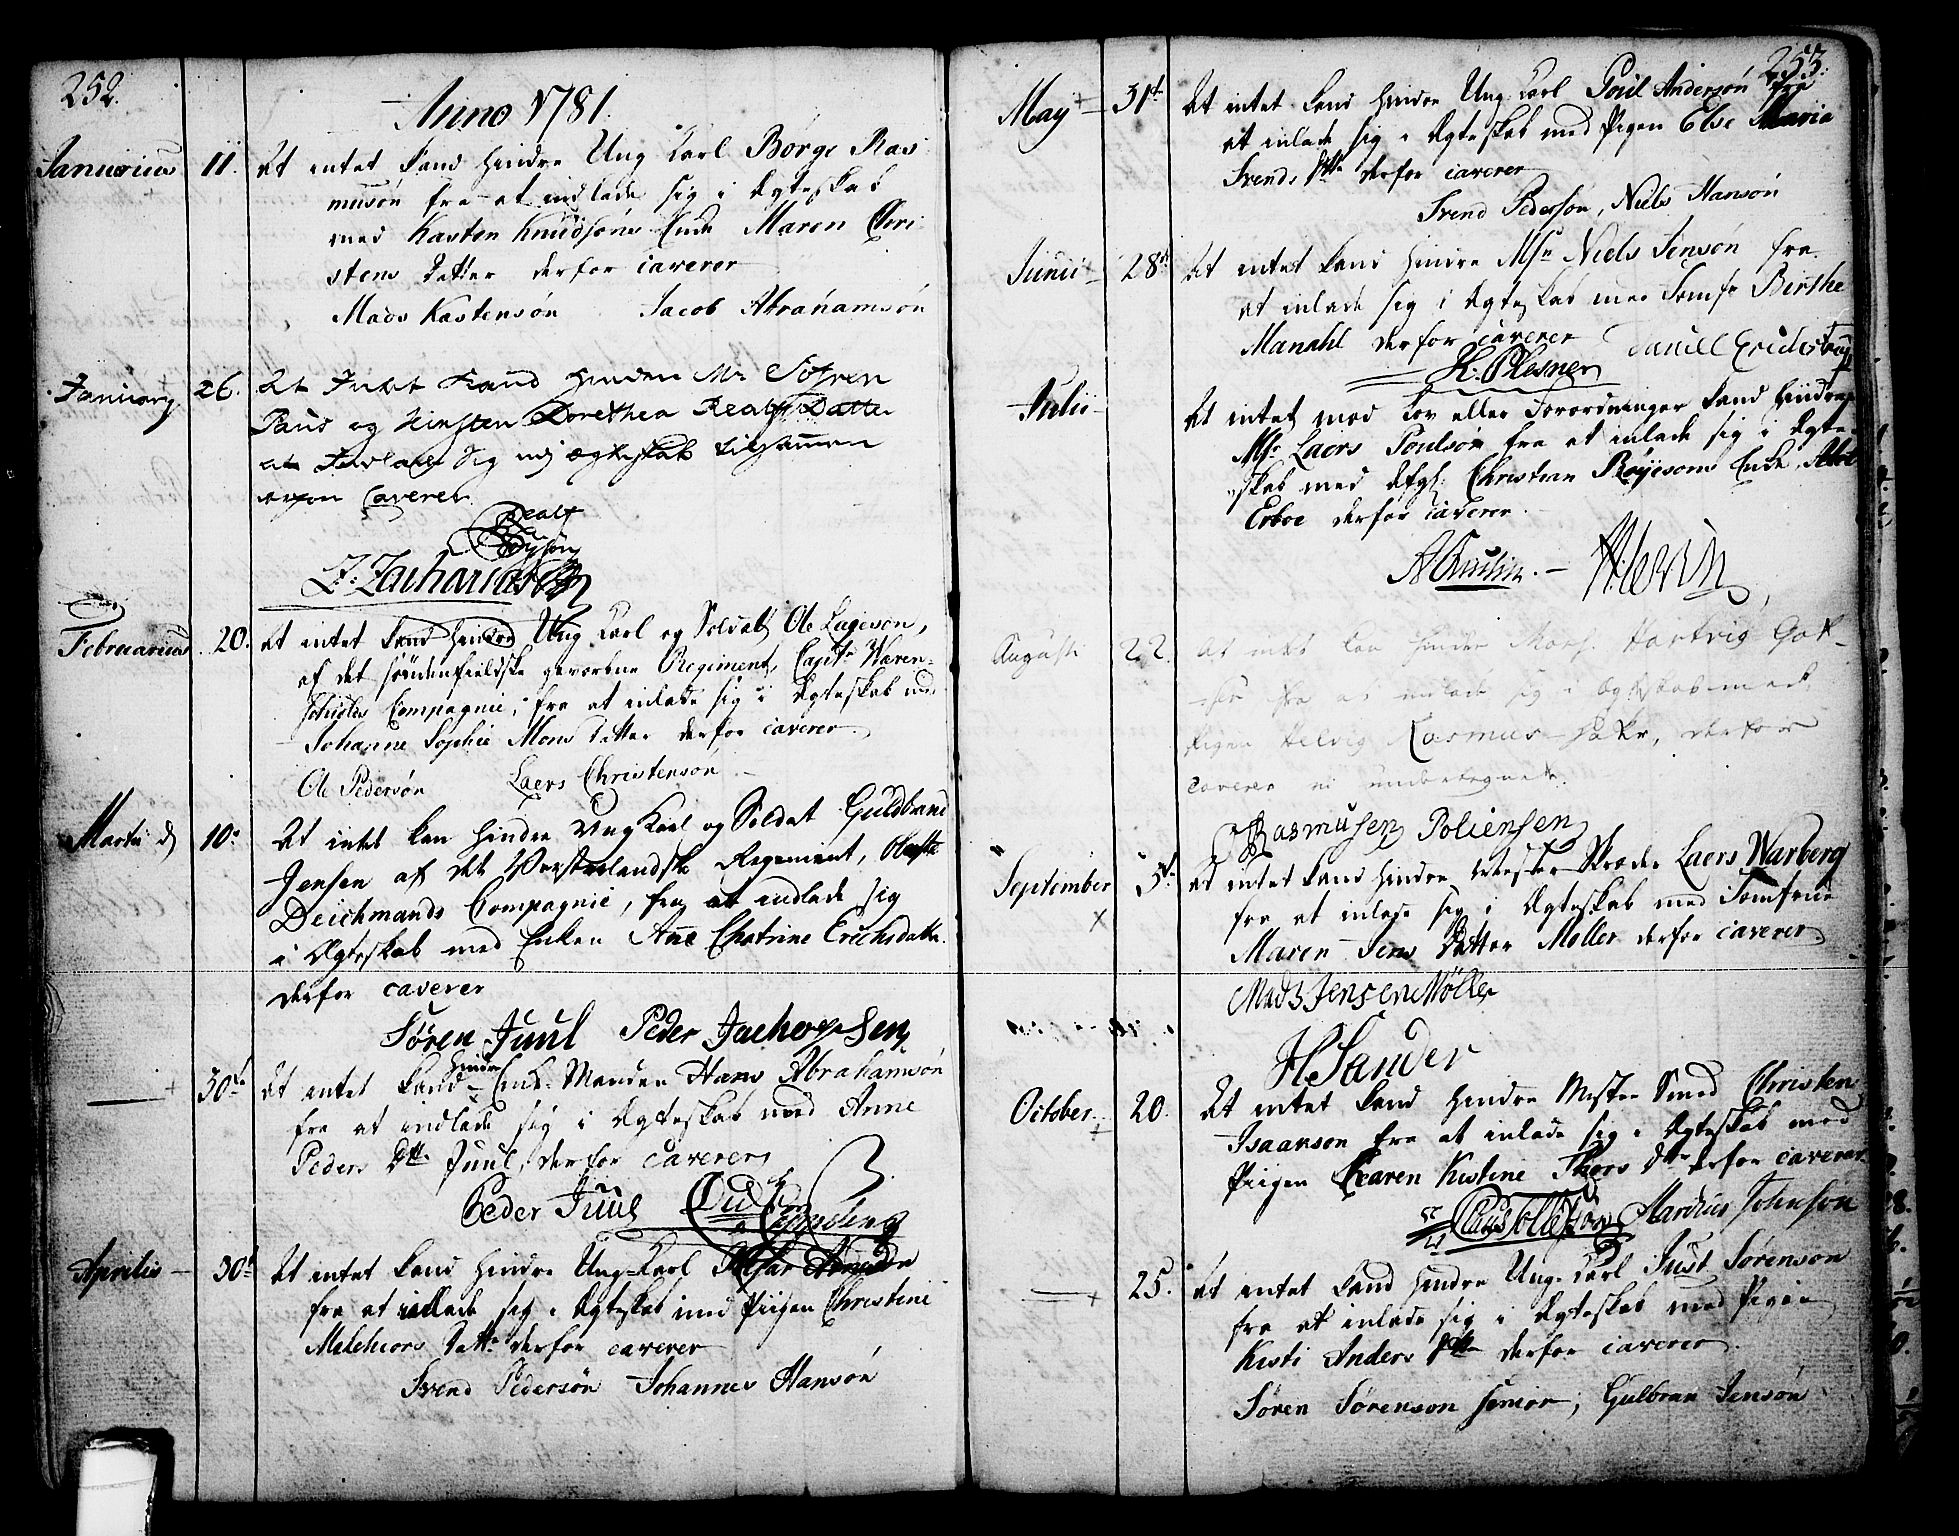 252.
Anno 1781.
Januarius 11. At intet kand hindre Ung Karl Børge Ras
musøn fra at indlade sig i Ægteskab
med Kasten Knudsøns Enke Maren Chri
stens Datter derfor caverer
Mads Kastensøn Jacob Abrahamsøn
January 26. At Intet Kand Hindre Mr Søfren
Paus og Dorethea Realfs Datter
at Indlade sig udj ægteskab tilsammen
Caverer
Realf
J. Zachariasen
Februarius 20. At intet kand hindre Ung Karl og Soldat Ole Lagesøn,
af det søndenfieldske gevorbne Regiment, Capt. Waren-
Compagnie, fra at inlade sig i Ægteskab med
Johanne Sophie Mons Datter derfor caverer
Ole Pedersøn Laers Christensøn
Martii d 10. At intet kan hindre Ung Karl og Soldat Guldbrand
Jensen af det Vesterlandske Regiment,
Deichmands Compagnie, fra at indlade sig
i Ægteskab med Enken Ane Chatrine Erichsdatter
derfor caverer
Søren Juul Peder Jachopsen
30te At intet kand hindre Enke Manden Hans Abrahamsøn
fra at indlade sig i Ægteskab med Anne
Peders Dtt. Juul, derfor caverer
Peder Juul
Aprilis 30t At intet kand hindre Ung Karl
fra at inlade sig i Ægteskab med Piigen Christine
Melchiors Datt. derfor caverer
Svend Pedersøn Johannes Hansøn
253.
May 31t At intet kand hindre Ung Karl Poul Andersøn fra
at inlade sig i Ægteskab med Pigen Else Maria
Svends Dtt. derfor caverer
Svend Pedersøn, Niels Hansøn
Junii 28t At intet kand hindre Msr Niels Jensøn fra
at inlade sig i Ægteskab med Jomfr Birthe
Manahl derfor caverer
H. Plesner
Julii At intet med Lov eller Forordninger kand hindre
Msr. Laers Poulsøn fra at inlade sig i Ægte-
skab med Christian Enke
derfor caverer
August 22. At intet kan hindre Hartvig
fra at indlade sig i Ægteskab med
Pigen Helvig Rasmus derfor
caverer vi undertegnede
Rasmusen Poliensen
September 3t At intet kand hindre Mester Skræder Laers Warberg
fra at inlade sig i Ægteskab med Jomfrue
Maren Jens Datter Møller derfor caverer
Mads Jensen Møller
H Sander
October 20. At intet kand hindre Mester Smed Christen
Isaacsøn fra at inlade sig i Ægteskab med
Piigen Karen Kistine Thors Dtr derfor caverer
Claus Tollefsøn Marchus Johnsøn
25. At intet kand hindre Ung Karl Just Sørensøn
fra at inlade sig i Ægteskab med Pigen
Kisti Anders Dtt. derfor caverer
Søren Sørensøn senior, Gulbran Jensøn